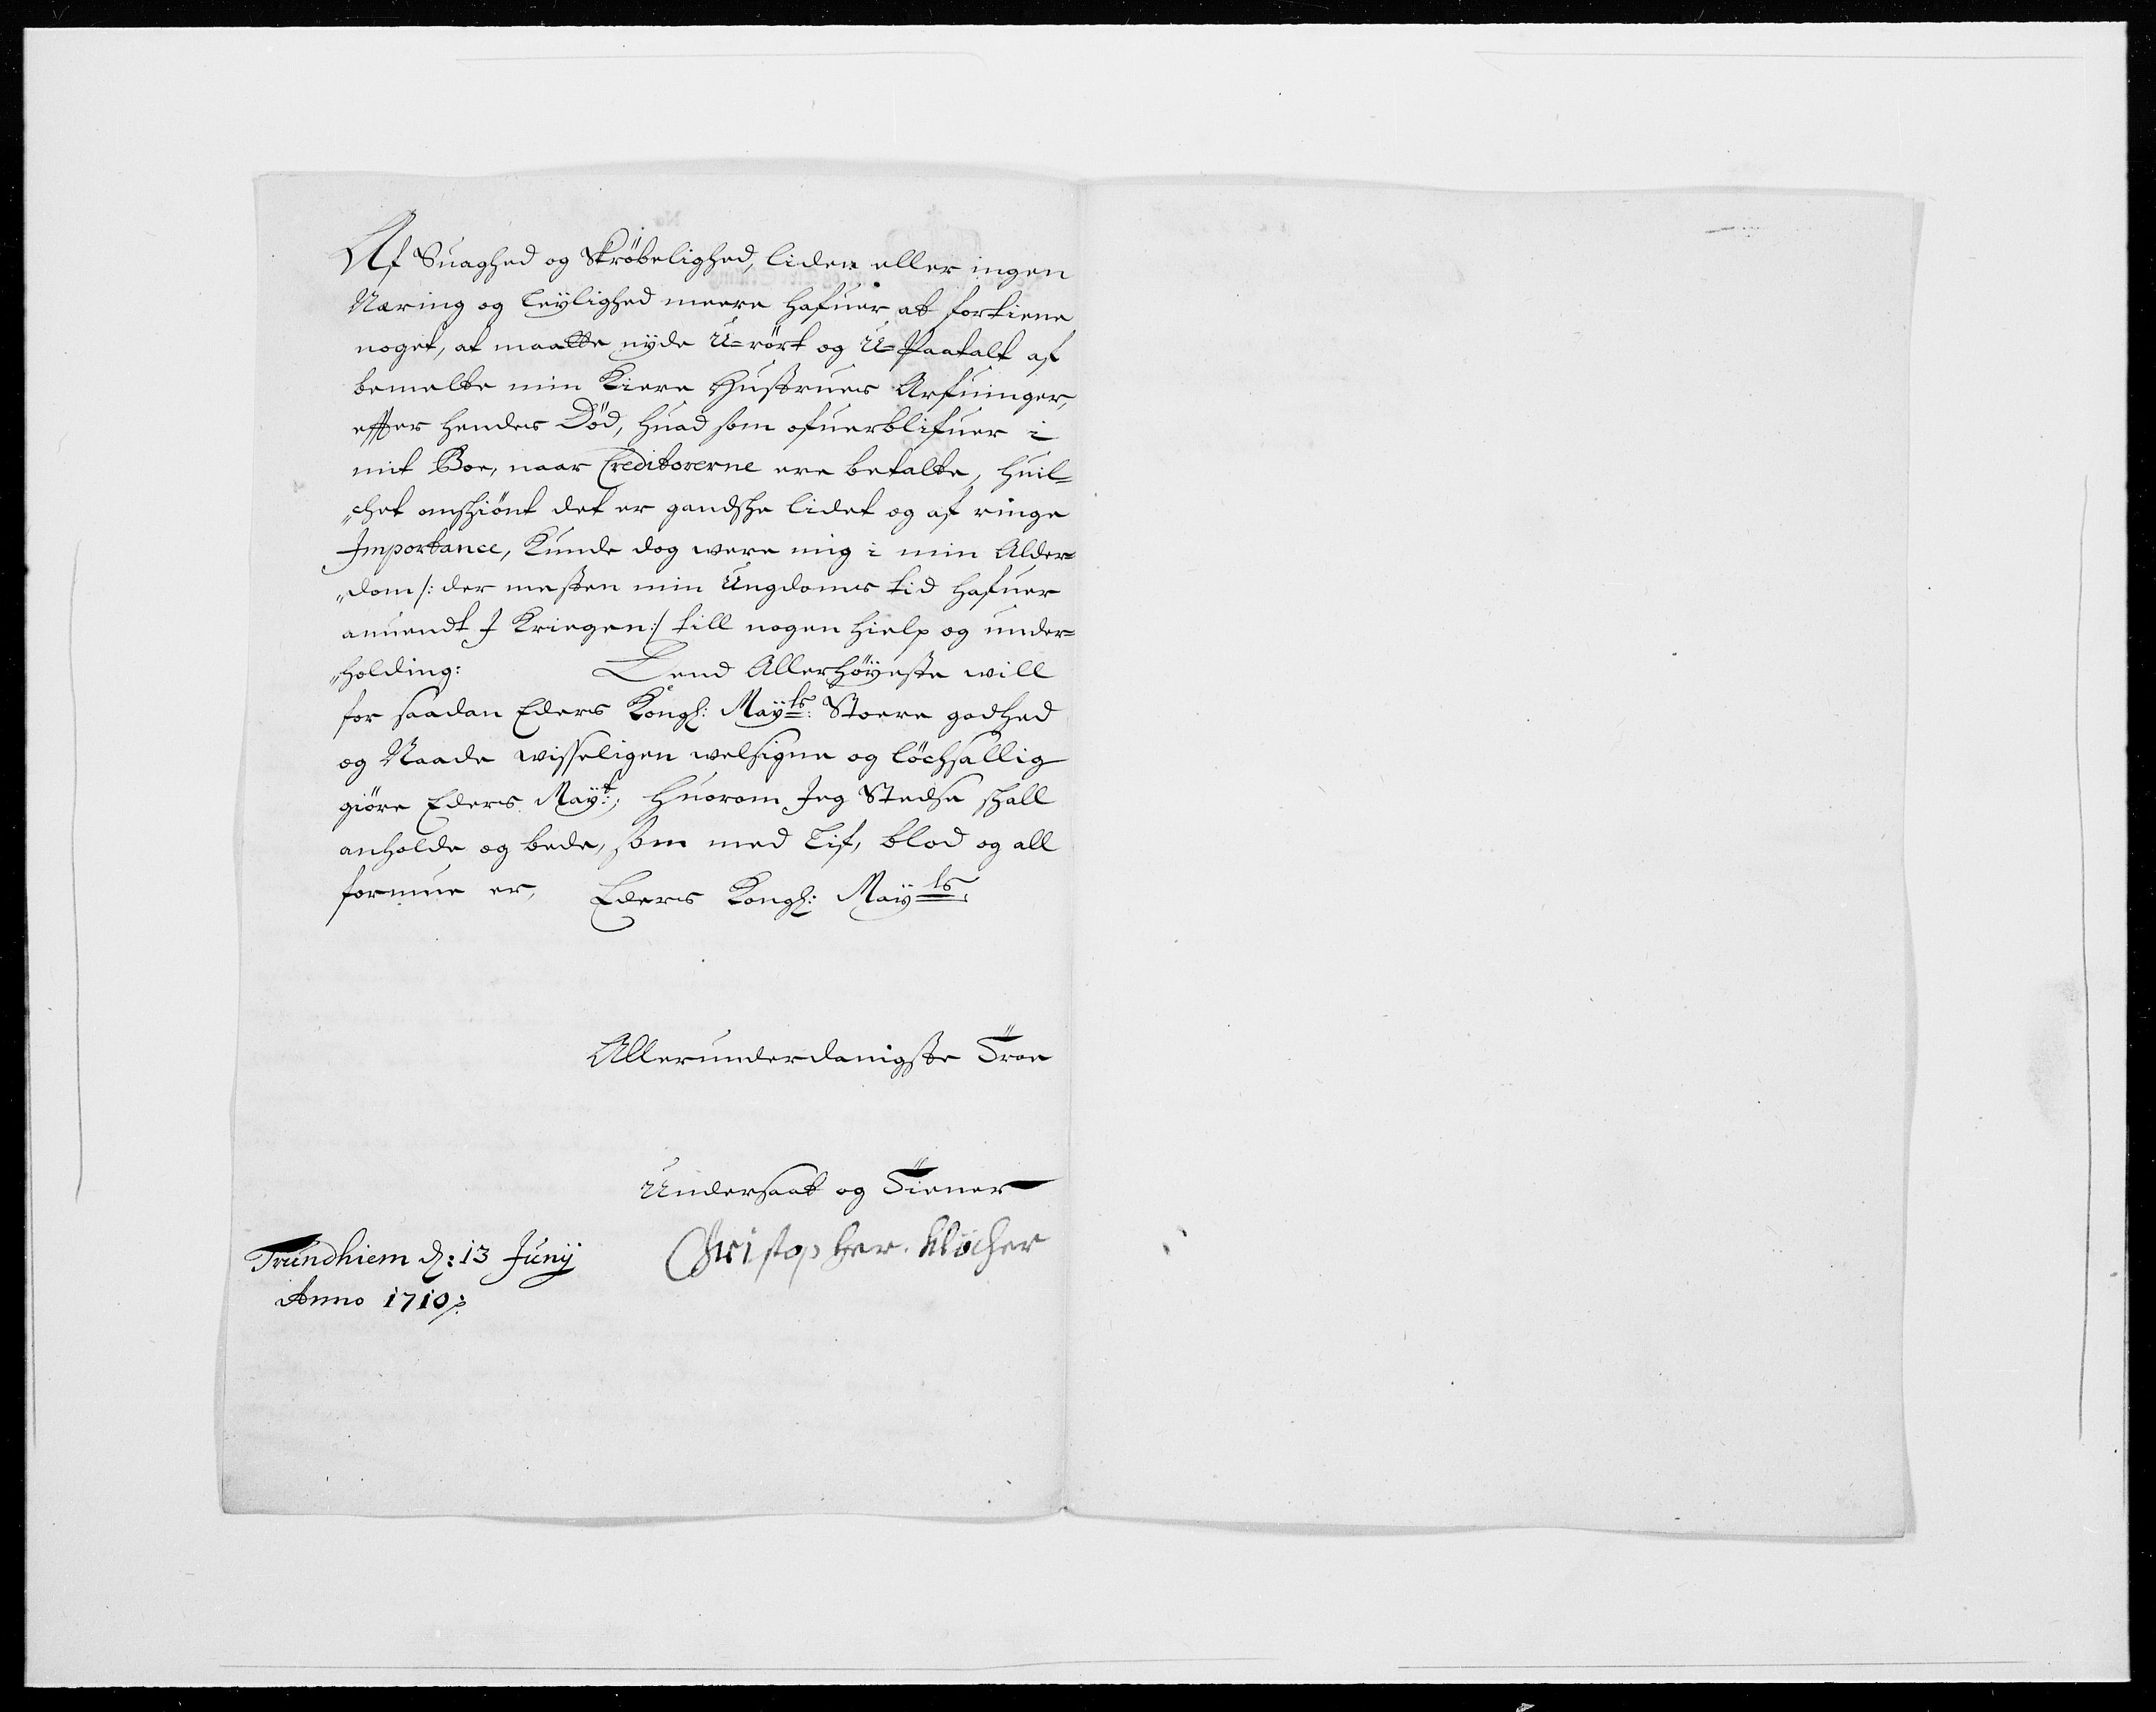 Af Suaghed og Skröbelighed, liden eller ingen
Næring og leÿlighed meere hafuer at fortiene
noget, at maatte nyde U=rört og U=Paatalt af
bemelte min Kiere Hustrues Arfuinger,
effter hendes Död, huad som ofuerblifuer i
mit Boe, naar Creditorerne ere betalte, huil=
„chet omschiönt det er gandshe lidet og af ringe
Importance, Kunde dog were mig i min Alder=
„dom /: der mesten min Ungdoms tid hafuer
anuendt J Kriegen :/ till nogen hielp og under=
„holding: Gud Allerhöyeste will
for saadan Eders Kongl: Mayts: Stoere godhed
og Naade wisseligen welsigne og löchsallig
giöre Eders Mayt:, huorom Jeg Stedse shall
anholde og bede, som med Lif, blod og all
formue er, Eders Kongl: Maÿts:
Allerunderdanigste Troe
Undersaat og Tiener
Christopher Klöcher
Trundhiem d: 13 Junij
Anno 1710/: